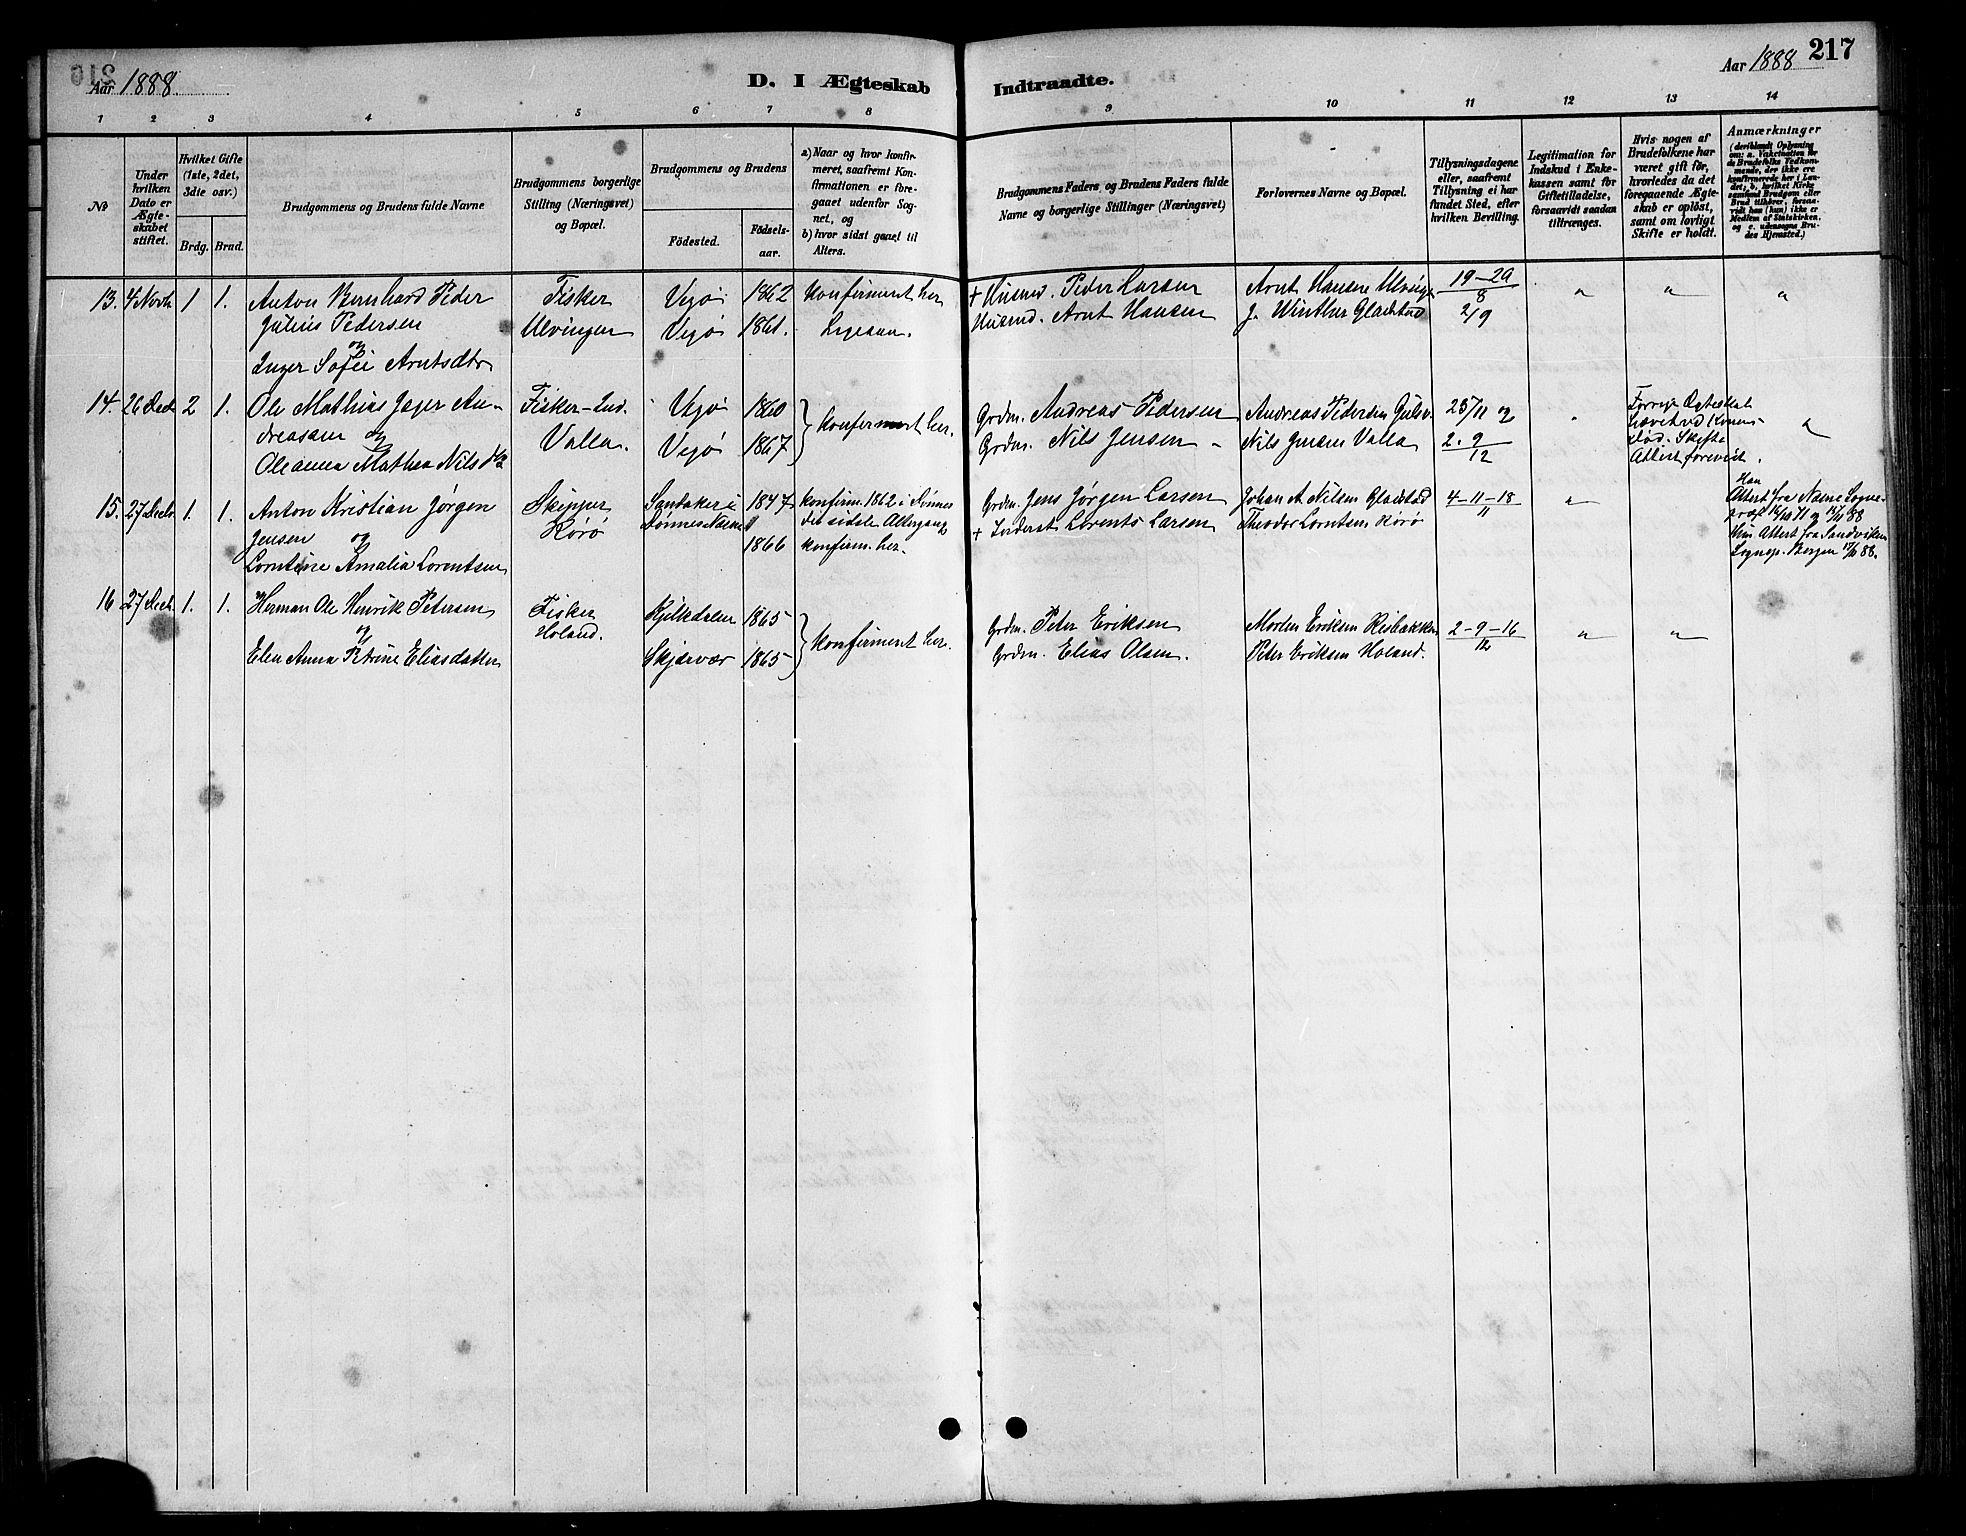 Aar 1888.
D. I Ægteskab Indtraadte.
Aar 1888
217
1 2 3 4 5 6 7 8 9 10 11 12 13 14
No
Under hvilken Dato er Ægteskabet stiftet.
Hvilket Gifte (1ste, 2det, 3die osv.)
Brdg. Brud.
Brudgommens og Brudens fulde Navne
Brudgommens borgerlige Stilling (Næringsvei) og Bopæl.
Brudgommens og Brudens
Födested.
Födselsaar.
a) Naar og hvor konfirmeret, saafremt Konfirmationen er foregaaet udenfor Sognet, og
b) hvor sidst gaaet til Alters.
Brudgommens Faders, og Brudens Faders fulde Navne og borgerlige Stillinger (Næringsvei)
Forlovernes Navne og Bopæl.
Tillysningsdagene eller, saafremt Tillysning ei har fundet Sted, efter hvilken Bevilling.
Legitimation for Indskud i Enkekassen samt for Giftetilladelse, forsaavidt saadan tiltrænges.
Hvis nogen af Brudefolkene har været gift för, hvorledes da det foregaaende Ægteskab er oplöst, samt om lovligt Skifte er holdt.
Anmærkninger (deriblandt Oplysning om: a. Vakcination for de Brudefolks Vedkommende, der ikke ere konfirmerede her i Landet; b. hvilket Kirkesamfund Brudgom eller Brud tilhörer, forsaavidt han (hun) ikke er Medlem af Statskirken. og c. udensogns Brudes Hjemsted.)
13. 4 Novb. 1 1.
Anton Bernhard Peder
Julius Pedersen
og
Inger Sofie Arntsdtr
Fisker
Ulvingen
Vegö 1862
Vegö 1861.
Konfirmeret her
Ligesaa.
+ Husmd. Peder Larsen
Husmd. Arnt Hansen
Arnt Hansen Ulvinge
J. Winther Gladstad
19-29/8
2/9
" " "
14. 26 Decb. 2 1.
Ole Mathias Jager Andreasen
og
Oleanna Mathea Nilsdtr
Fisker-Ind.
Valla.
Vegö 1860
Vegö 1867
Konfirmeret her.
Grdm. Andreas Pedersen
Grdm. Nils Jensen
Andreas Pedersen Gulsv.
Nils Jensen Valla
25/11 og
2-9/12
"
Forrige Ægteskab
hævet ved Konens
död. Skifte
Attest forevist.
"
15. 27 Decb. 1. 1.
Anton Kristian Jørgen
Jensen og
Lorntine Amalia Lorentsen
Skipper
Rörö
Sandaker i 1847
1866
konfirm. 1862 i
det sidste Altergang
konfirm. her.
Grdm. Jens Jörgen Larsen
+ Lorents Larsen
Johan A. Nilsen Gladstad
Theodor Lorntsen Rörö
4-11-18/11
"
Han
Attest fra
Hun Attest fra Sandviken
Sognep. Bergen 88.
16 27 Decb. 1. 1.
Herman Ole Henrik Petersen
og
Elen Anna Petrine Eliasdatter
Fisker
Holand.
Kjilkdalen 1865
Skjærvær 1865
Konfirmeret her.
Grdm. Peter Eriksen
Grdm. Elias Olsen.
Morten Eriksen Risbakken
Peter Eriksen Holand.
2-9-16/12
" "